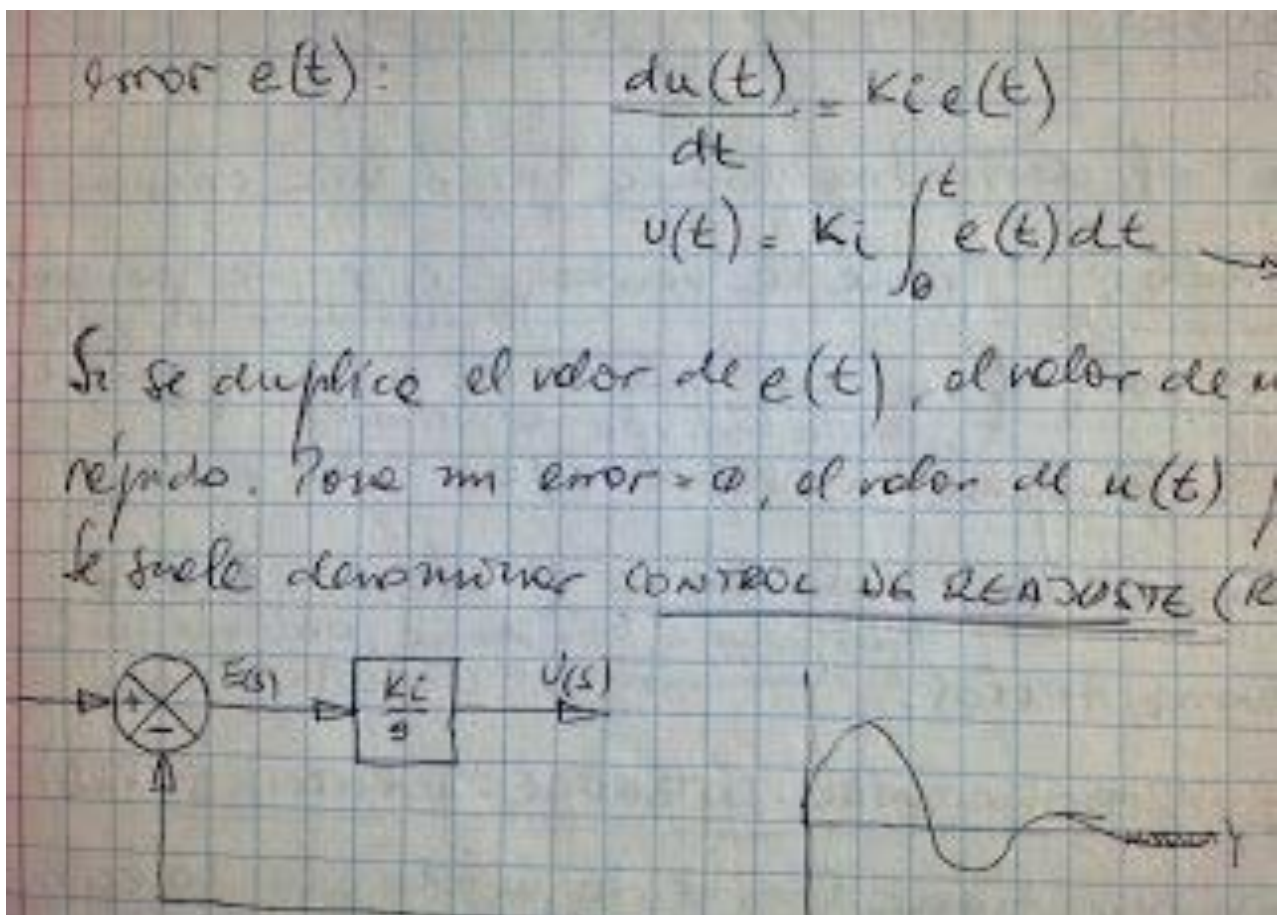 error e(t):
du(t)/dt = Ki e(t)
u(t) = Ki ∫₀ᵗ e(t)dt →
Si se duplica el valor de e(t), el valor de u
rápido. Para un error = 0, el valor de u(t)
Se suele denominar CONTROL DE REAJUSTE (R
+ - E(s) Ki/s U(s)